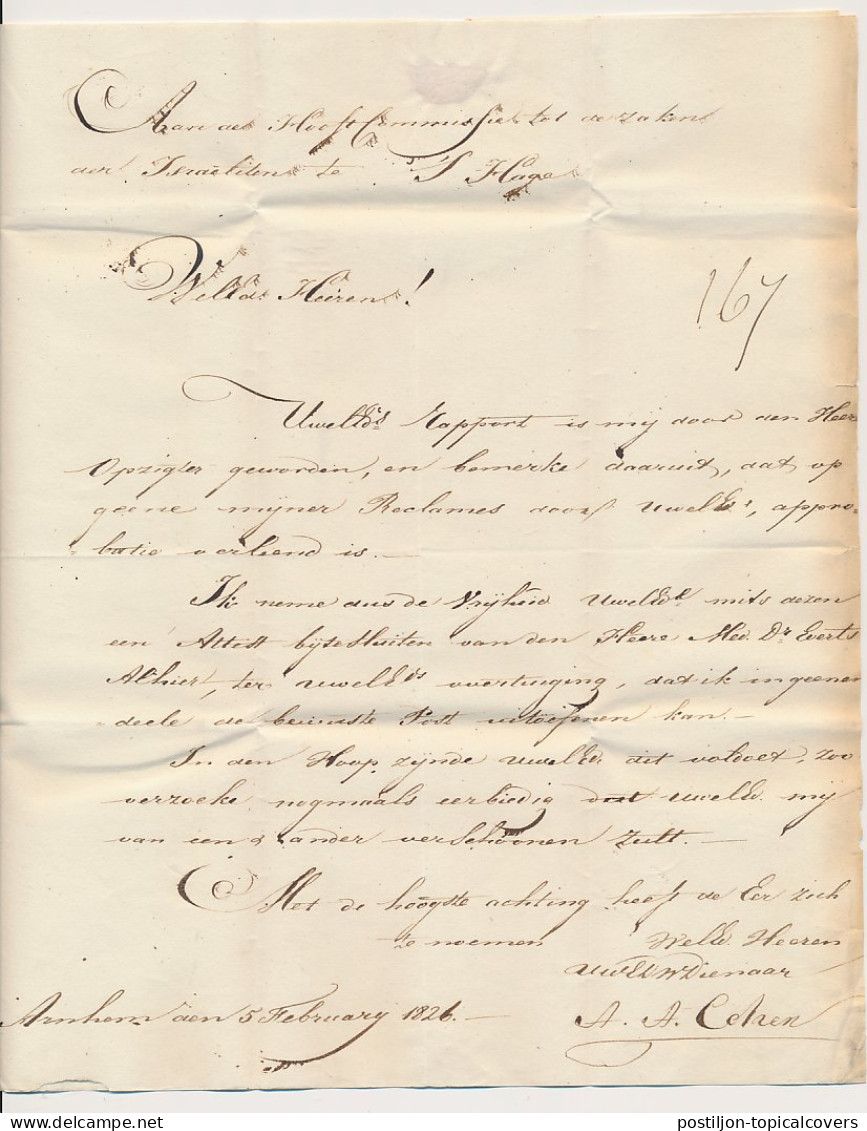 Aan de Hooft Commissie tot de zaken
der Israëliten te S' Hage
WelEd: Heeren!
167
UwelEd:s Rapport is mij door den Heer
Opzigter geworden, en bemerke daaruit, dat op
geene mijner Reclames door UwelEd:s, appro-
-batie verleend is. —
Ik neme dus de Vrijheid UwelEd:e mits dezen
een Attest bijtesluiten van den Heere Med. Dr Everts
Alhier, ter UwelEd:s overtuiging, dat ik in geenen
deele de bewuste Post uitoefenen kan. —
In den Hoop zijnde UwelEd. dit voldoet, zoo
verzoeke nogmaals eerbiedig dat UwelEd. mij
van een & ander verschoonen zult. —
Met de hoogste achting heeft de Eer zich
te noemen WelEd. Heeren
UwEdWDienaar
Arnhem den 5 February 1826. — A. A. Cohen
postiljon-topicalcovers